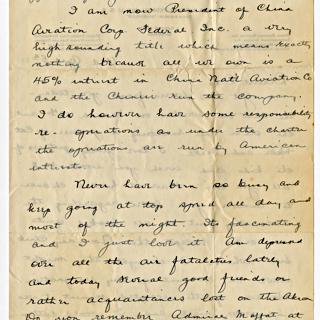 I am now President of China
Aviation Corp. Federal Inc. a very
high sounding title which means exactly
nothing because all we own is a
45% intrust in China Nat'l Aviation Co
and the Chinese run the company.
I do however have some responsibility
re. operations as under the charter
the operations are run by American
interests.
Never have been so busy and
keep going at top speed all day and
most of the night. Its fascinating
and I just love it. Am depressed
over all the air fatalities lately
and today several good friends or
rather acquaintances lost on the Akron
Do you remember Admiral Moffat at